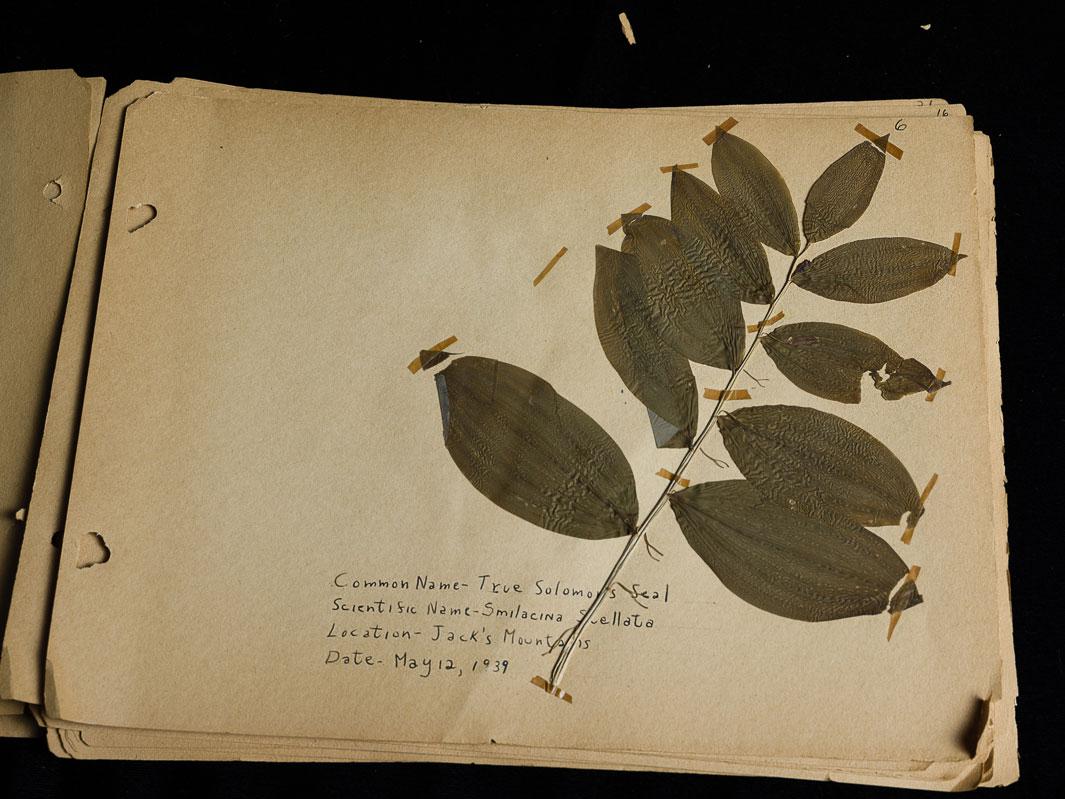 16
6
Common Name- True Solomon's Seal
Scientific Name- Smilacina Stellata
Location- Jack's Mountains
Date- May 12, 1939